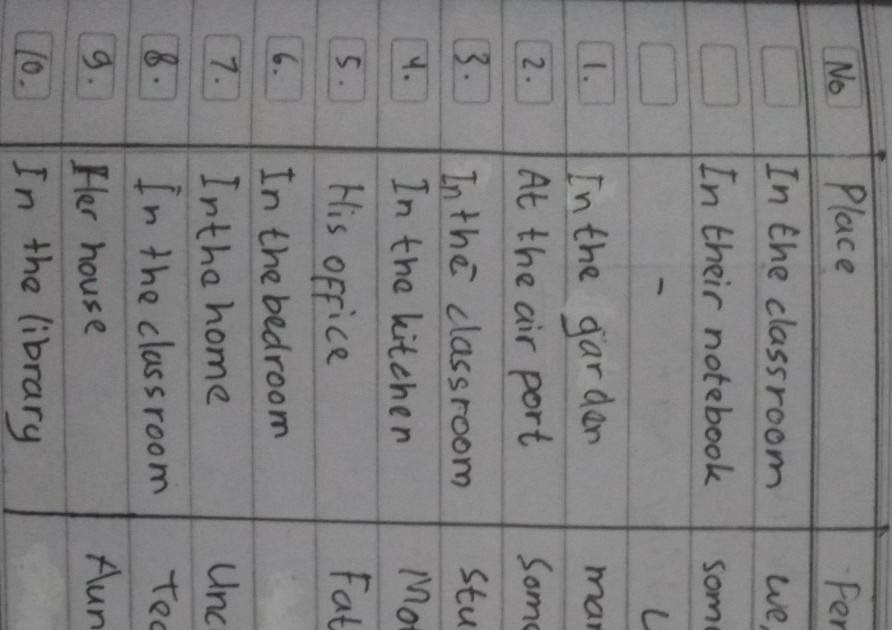 No Place Per
In the classroom we,
In their notebook som
-
1. In the garden mar
2. At the air port Some
3. In the classroom Stu
4. In the kitchen Mo
5. His office Fat
6. In the bedroom
7. In the home Unc
8. In the classroom Tec
9. Her house Aun
10. In the library